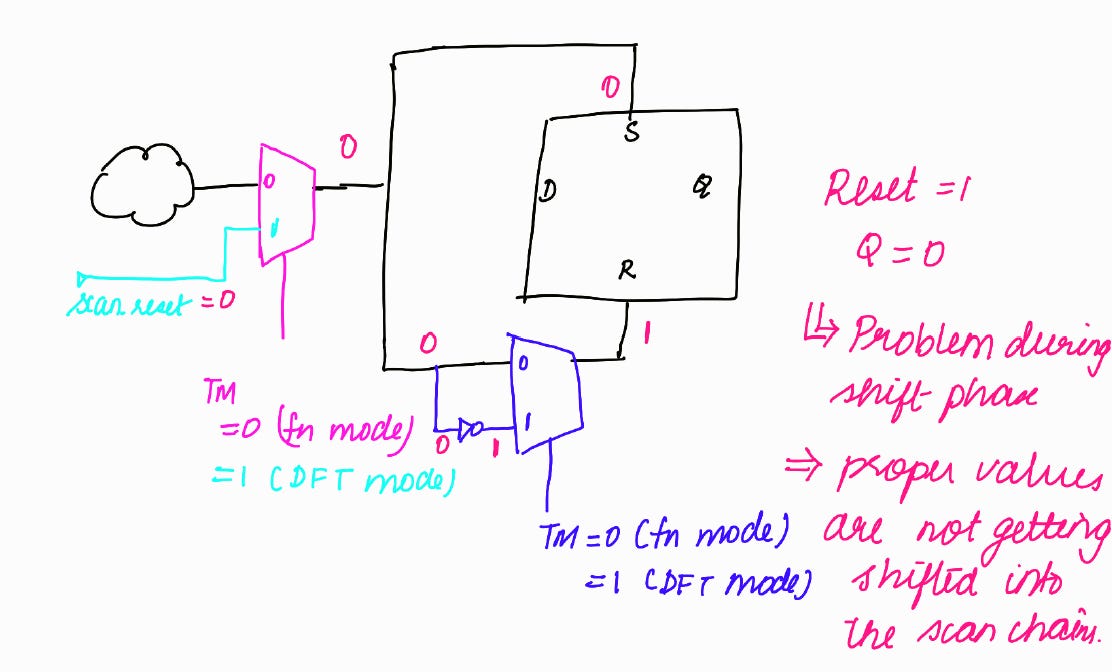 0
S
D
Q
R
0
0
1
scan reset = 0
0
1
0
0
1
0
1
TM
=0 (fn mode)
=1 (DFT mode)
TM =0 (fn mode)
=1 (DFT mode)
Reset =1
Q = 0
↳ Problem during
shift phase
⇒ proper values
are not getting
shifted into
the scan chains.